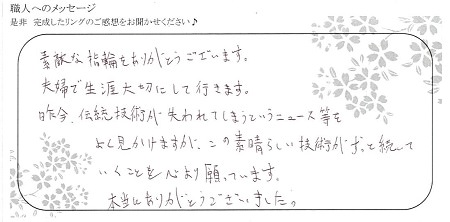 職人へのメッセージ
是非 完成したリングのご感想をお聞かせください♪
素敵な指輪をありがとうございます。
夫婦で生涯大切にして行きます。
昨今、伝統技術が失われてしまうというニュース等を
よく見かけますが、この素晴らしい技術がずっと続いて
いくことを心より願っています。
本当にありがとうございました。